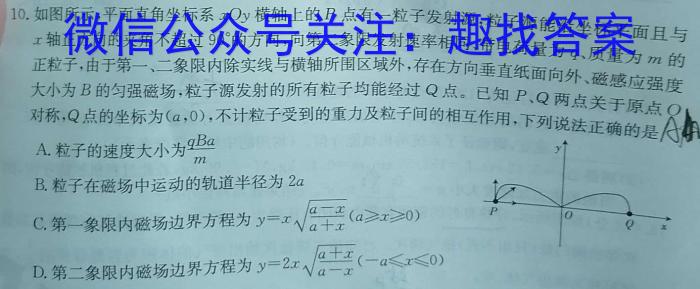 10. 如图所示,平面直角坐标系 xOy 横轴上的 P 点有一粒子发射源,粒子源能 坐标平面且与
x 轴正 的夹角不超过 9 °的方向,向第 象限发射速率相 电荷量为 q、质量为 m 的
微信公众号关注:趣找答案
正粒子,由于第一、二象限内除实线与横轴所围区域外,存在方向垂直纸面向外、磁感应强度
大小为 B 的匀强磁场,粒子源发射的所有粒子均能经过 Q 点。已知 P、Q 两点关于原点 O
对称,Q 点的坐标为(a,0),不计粒子受到的重力及粒子间的相互作用,下列说法正确的是
A. 粒子的速度大小为 qBa/m
B. 粒子在磁场中运动的轨道半径为 2a
C. 第一象限内磁场边界方程为 y=x√((a−x)/(a+x)) (a⩾x⩾0)
D. 第二象限内磁场边界方程为 y=2x√((a+x)/(a−x)) (−a⩽x⩽0)
y
P
O
Q
x